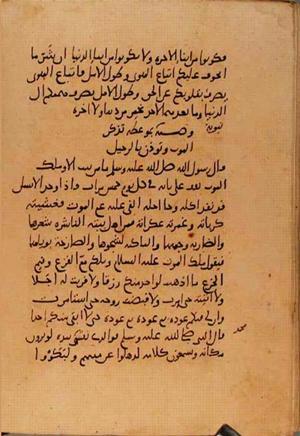 فكونوا من ابنا الاخره ولا تكونوا من ابنا الدنيا ان شر ما
اتخوف عليكم اتباع الهوى وطول الامل فاتباع الهوى
يصرف بقلوبكم عن الحق وطول الامل يصرف هممكم الى
الدنيا وما بعدهما لاحد خير من دنيا ولا اخره
وصيته بموعظه تذكر
الموت وتوذن بالرحيل
قال رسول الله صلى الله عليه وسلم ما من بيت الا وملك
الموت يقف على بابه في كل يوم خمس مرات فاذا وجد الانسان
قد نفد اكله وجا اجله القى عليه غم الموت فغشيته
كرباته وغمرته غمراته فمن اهل بيته الناشره شعرها
والضاربه وجهها والباكيه لشجوها والصارخه بويلها
فيقول ملك الموت عليه السلام ويلكم مم الفزع وفيم
الجزع ما اذهبت لواحد منكم رزقا ولا قربت له اجلا
ولا اتيته حتى امرت ولا قبضت روحه حتى استامرت
وان لي فيكم عوده ثم عوده ثم عوده حتى لا ابقي منكم احدا
قال النبي صلى الله عليه وسلم فوالذي نفسي بيده لو يرون
مكانه ويسمعون كلامه لذهلوا عن ميتهم ولبكوا